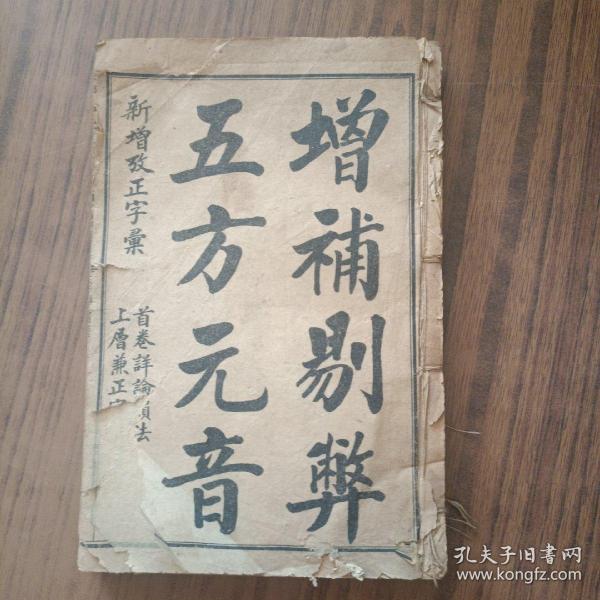 增補剔弊
五方元音
新增攷正字彙
首卷詳論
上層兼正字
孔夫子旧书网
www.kongfz.com